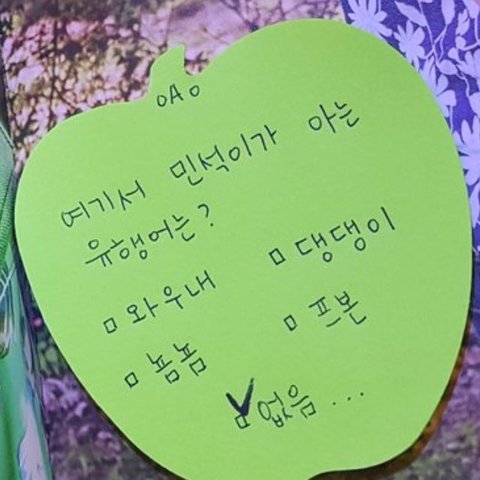 oAo
여기서 민석이가 아는
유행어는?
□ 와우내 □ 댕댕이
□ 뇸뇸 □ 프본
☑ 없음...